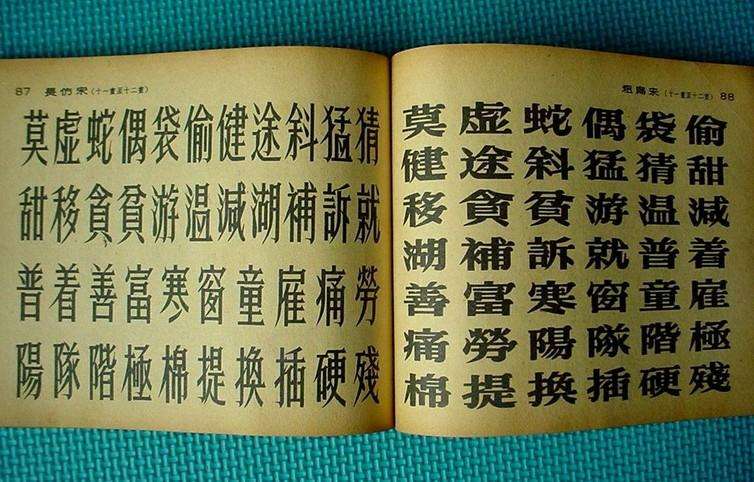 87 長仿宋(十一畫至十二畫)
莫虚蛇偶袋偷健途斜猛猜
甜移貪貧游温減湖補訴就
普着善富寒窗童雇痛勞
陽隊階極棉提換插硬殘
粗扁宋(十一畫至十二畫) 88
莫虚蛇偶袋偷
健途斜猛猜甜
移貪貧游温減
湖補訴就普着
善富寒窗童雇
痛勞陽隊階極
棉提換插硬殘